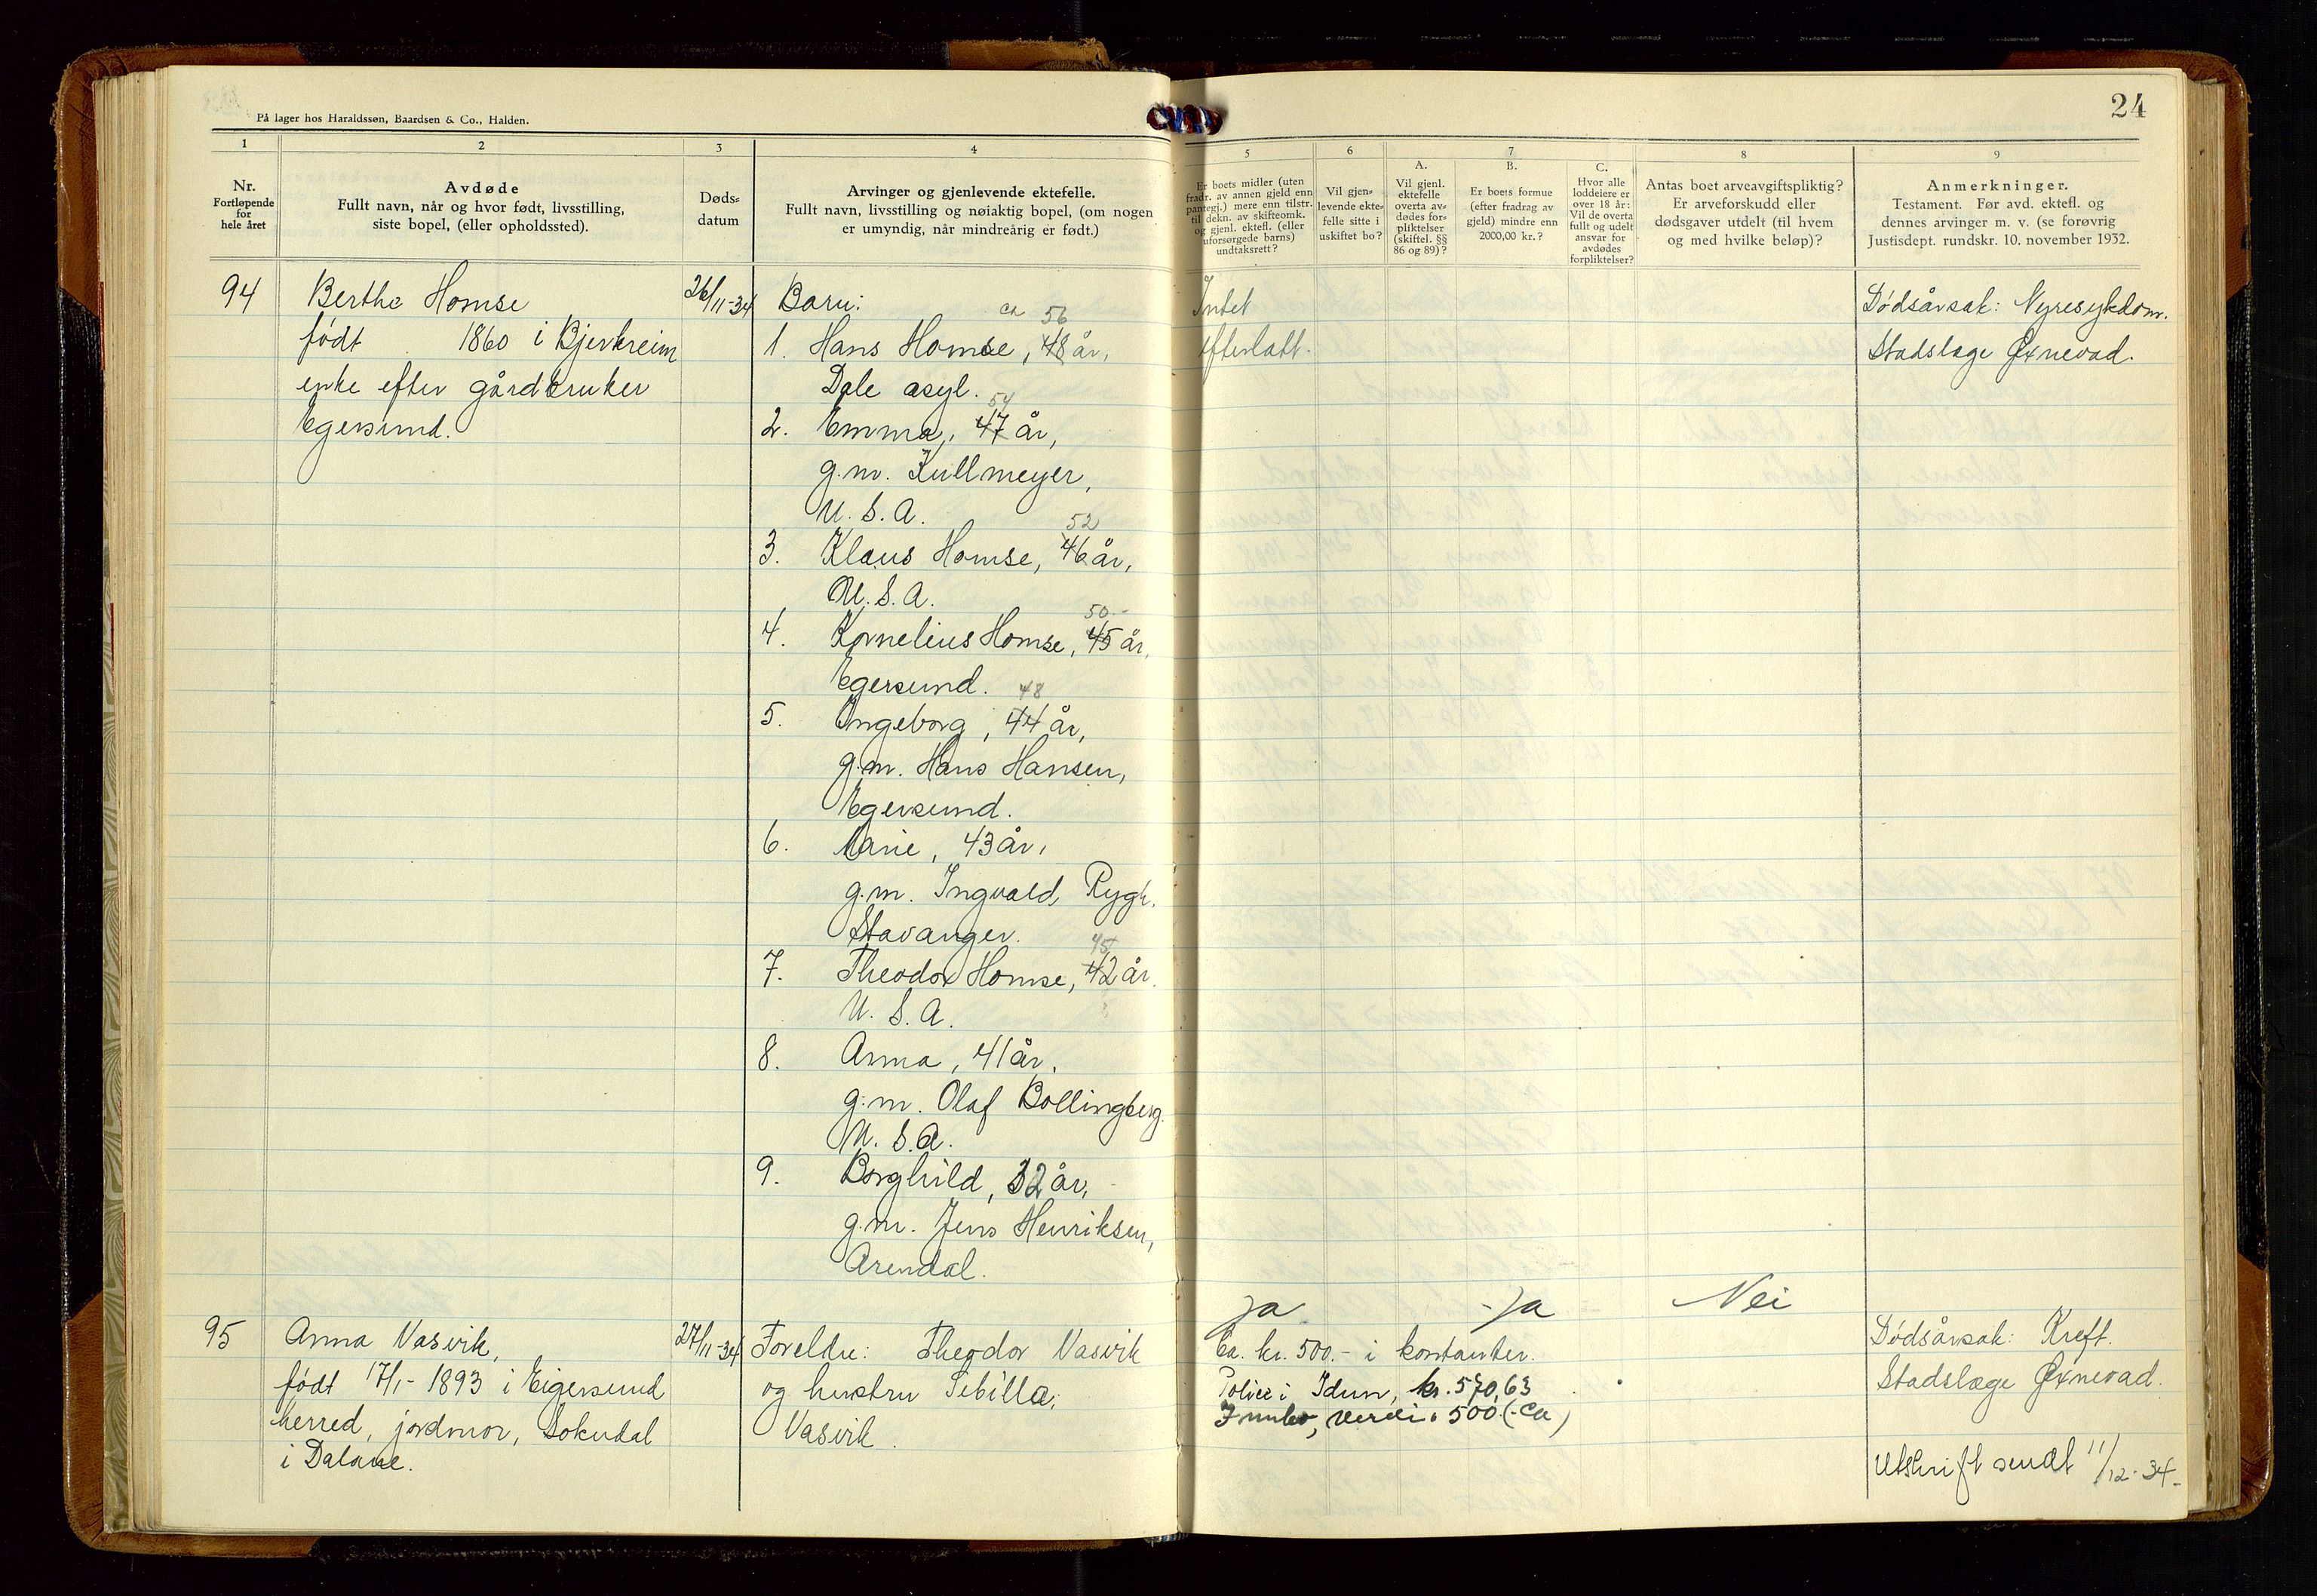 På lager hos Haraldssøn, Baardsen & Co., Halden.
24
1
2
3
4
5
6
7
8
9
Nr.
Fortløpende
for
hele året
Avdøde
Fullt navn, når og hvor født, livsstilling,
siste bopel, (eller opholdssted).
Døds-
datum
Arvinger og gjenlevende ektefelle.
Fullt navn, livsstilling og nøiaktig bopel, (om nogen
er umyndig, når mindreårig er født.)
Er boets midler (uten
fradr. av annen gjeld enn
pantegj.) mere enn tilstr.
til dekn. av skifteomk.
og gjenl. ektefl. (eller
uforsørgede barns)
undtaksrett?
Vil gjen-
levende ekte-
felle sitte i
uskiftet bo?
A.
Vil gjenl.
ektefelle
overta av-
dødes for-
pliktelser
(skiftel. §§
86 og 89)?
B.
Er boets formue
(efter fradrag av
gjeld) mindre enn
2000,00 kr.?
C.
Hvor alle
loddeiere er
over 18 år:
Vil de overta
fullt og udelt
ansvar for
avdødes
forpliktelser?
Antas boet arveavgiftspliktig?
Er arveforskudd eller
dødsgaver utdelt (til hvem
og med hvilke beløp)?
Anmerkninger.
Testament. Før avd. ektefl. og
dennes arvinger m. v. (se forøvrig
Justisdept. rundskr. 10. november 1932.
94
Berthe Homse
født 1860 i Bjerkreim
enke efter gårdbruker
Egersund.
26/11-34
Barn:
ca 56
1. Hans Homse, 48 år,
Dale asyl.
54
2. Emma, 47 år,
g.m. Kullmeyer,
U. S. A.
52
3. Klaus Homse, 46 år,
U. S. A.
50
4. Kornelius Homse, 45 år,
Egersund.
48
5. Ingeborg, 44 år,
g.m. Hans Hansen,
Egersund.
6. Marie, 43 år,
g.m. Ingvald Rygh.
Stavanger.
45
7. Theodor Homse, 42 år.
U. S. A.
8. Anna, 41 år,
g.m. Olaf Bollingberg.
U. S. A.
9. Borghild, 32 år,
g.m. Jens Henriksen,
Arendal.
Intet
efterlatt.
Dødsårsak: Nyresykdom.
Stadslæge Øxnevad.
95
Anna Vasvik,
født 17/1-1893 i Eigersund
herred, jordmor, Sokndal
i Dalane.
27/11-34
Foreldre: Theodor Vasvik
og hustru Sibilla,
Vasvik.
Ja
Ja
Nei
Ca. kr. 500.- i kontanter.
Police i Idun, kr. 570,63
Innbo, verdi. 500 (-ca)
Dødsårsak: Kreft.
Stadslæge Øxnevad.
Utskrift sendt 11/12-34-